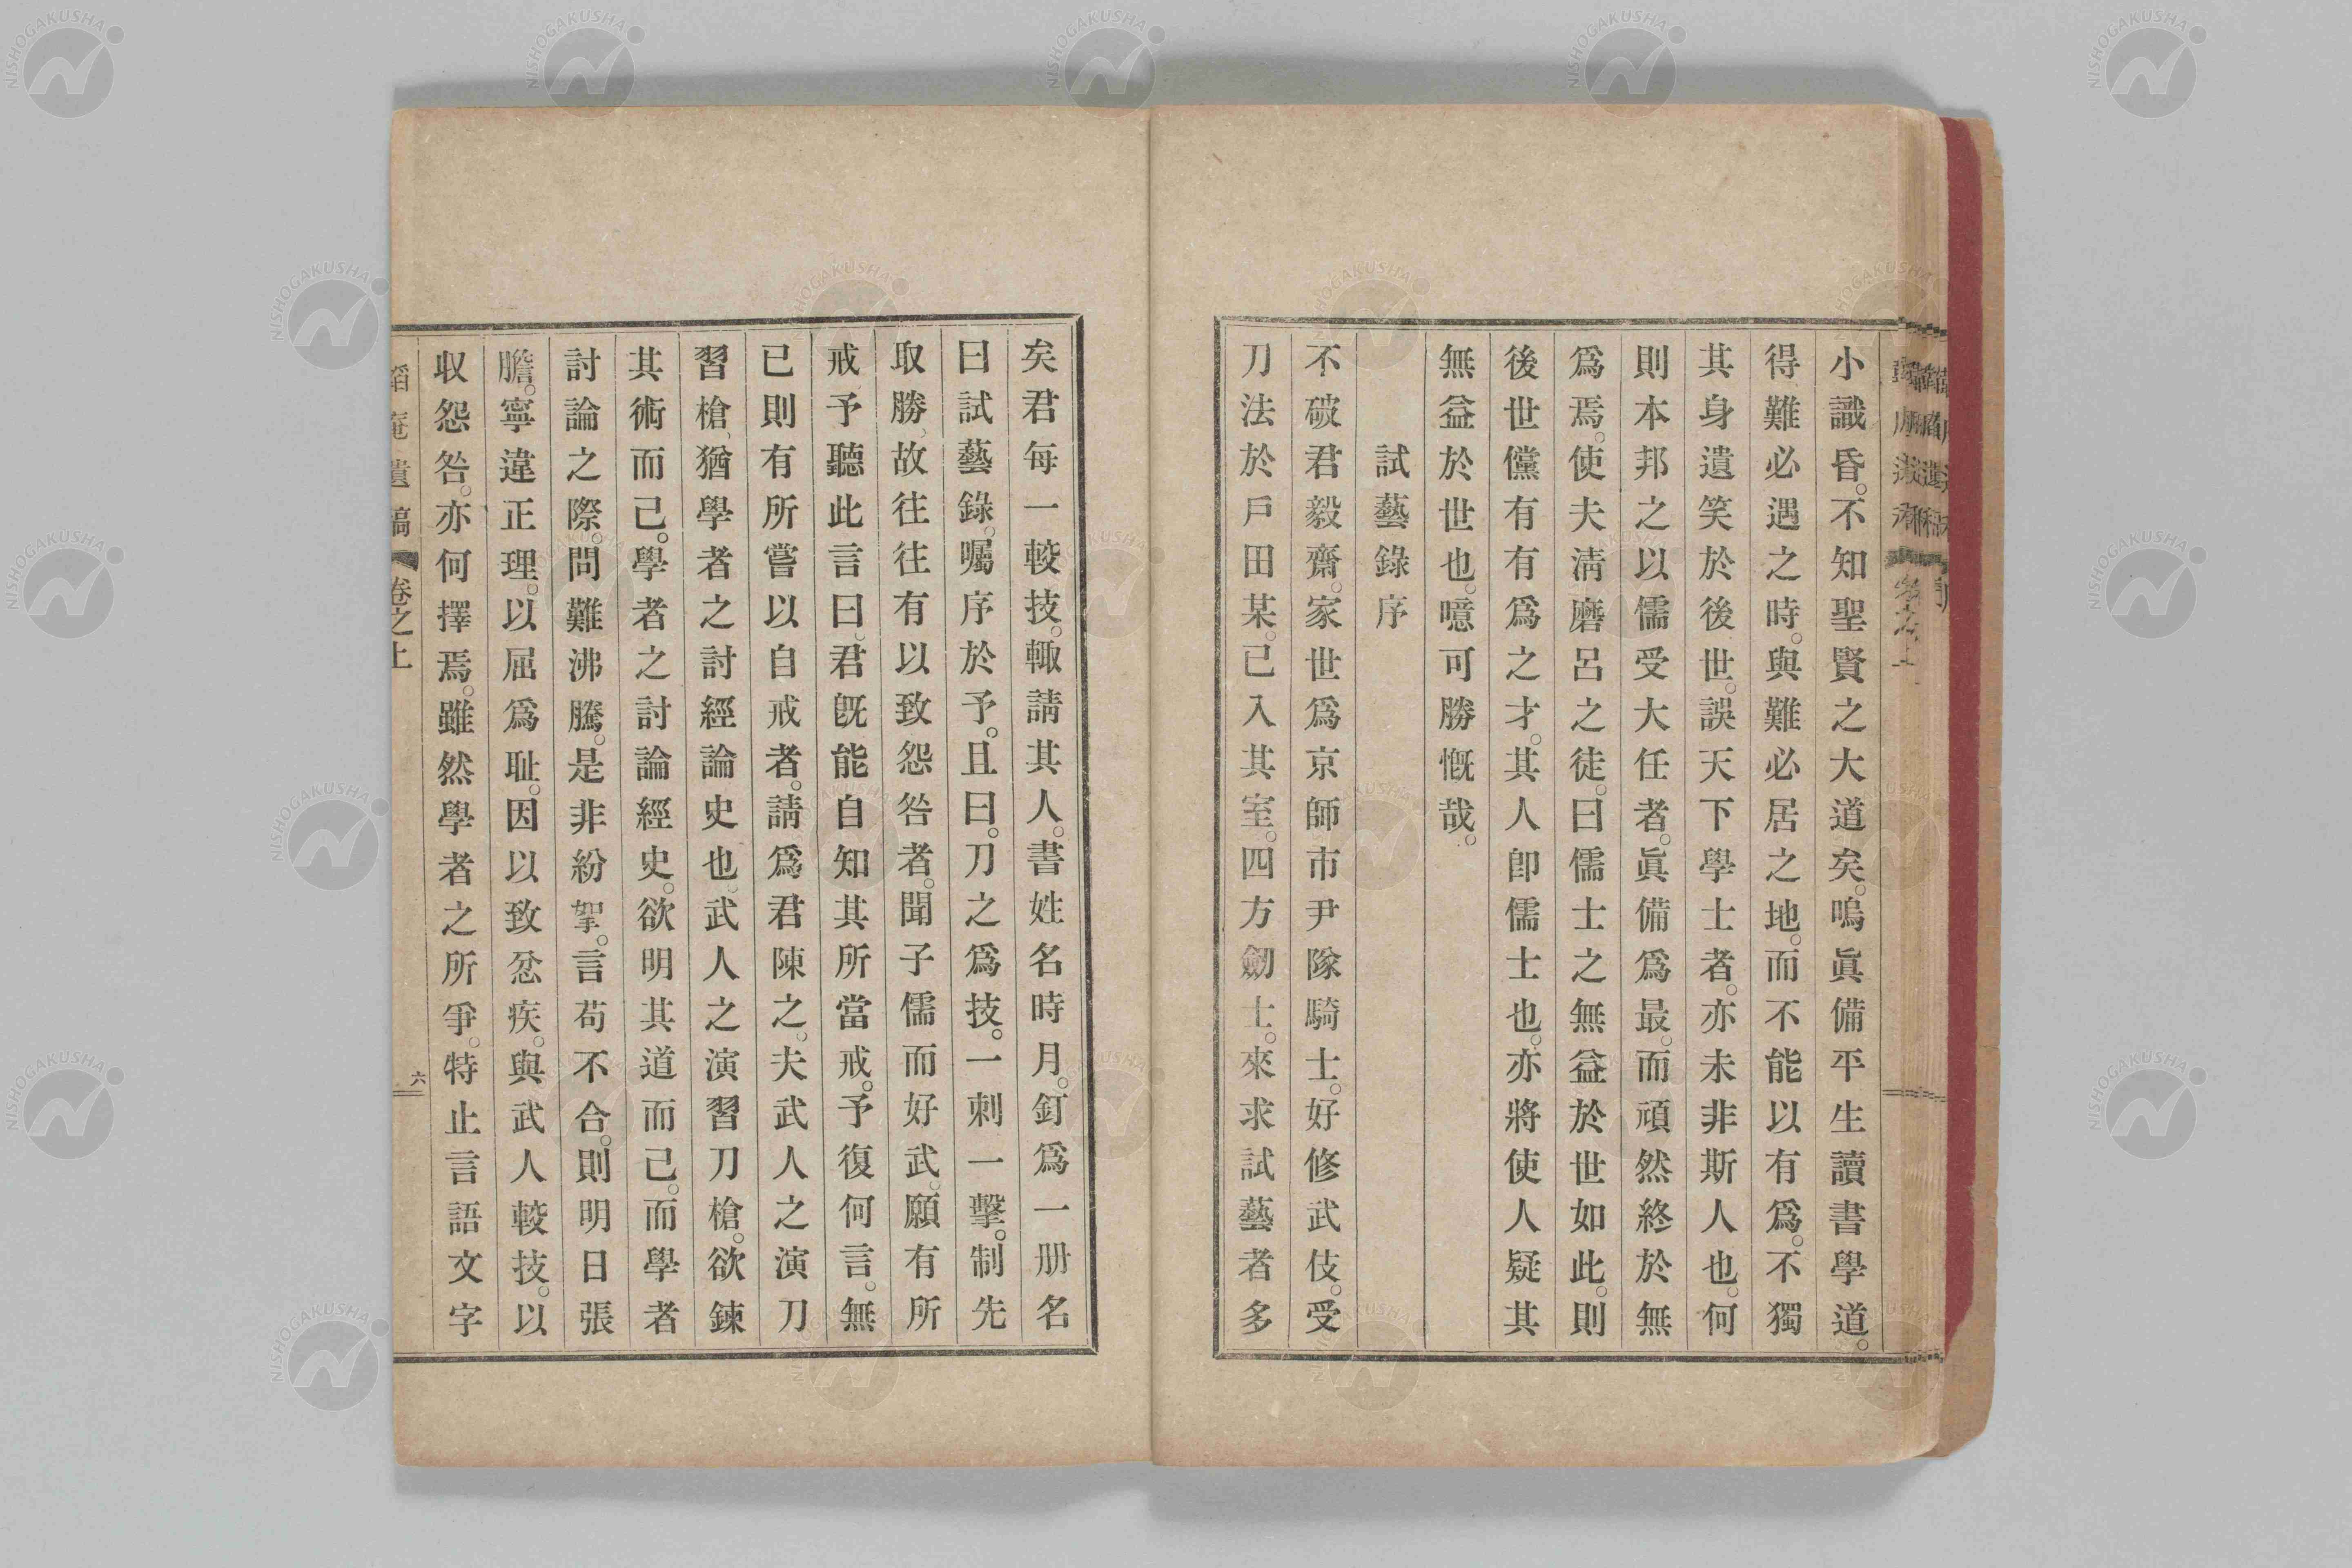 小識昏。不知聖賢之大道矣。嗚眞備平生讀書學道。
得難必遇之時。與難必居之地。而不能以有爲。不獨
其身遺笑於後世。誤天下學士者。亦未非斯人也。何
則本邦之以儒受大任者。眞備爲最。而頑然終於無
爲焉。使夫淸磨呂之徒。曰儒士之無益於世如此。則
後世儻有有爲之才。其人卽儒士也。亦將使人疑其
無益於世也。噫可勝慨哉。
試藝錄序
不破君毅齋。家世爲京師市尹隊騎士。好修武伎。受
刀法於戶田某。已入其室。四方劒士。來求試藝者多
矣君每一較技。輙請其人。書姓名時月。釘爲一册名
曰試藝錄。囑序於予。且曰。刀之爲技。一刺一擊。制先
取勝、故往往有以致怨咎者。聞子儒而好武。願有所
戒予聽此言曰、君旣能自知其所當戒。予復何言。無
已則有所嘗以自戒者。請爲君陳之。夫武人之演刀
習槍、猶學者之討經論史也、武人之演習刀槍。欲鍊
其術而已。學者之討論經史。欲明其道而已。而學者
討論之際。問難沸騰。是非紛挐。言苟不合。則明日張
膽。寧違正理。以屈爲耻。因以致忿疾。與武人較技。以
収怨咎。亦何擇焉。雖然學者之所爭。特止言語文字
菴遺稿 卷之上
六
NISHOGAKUSHA